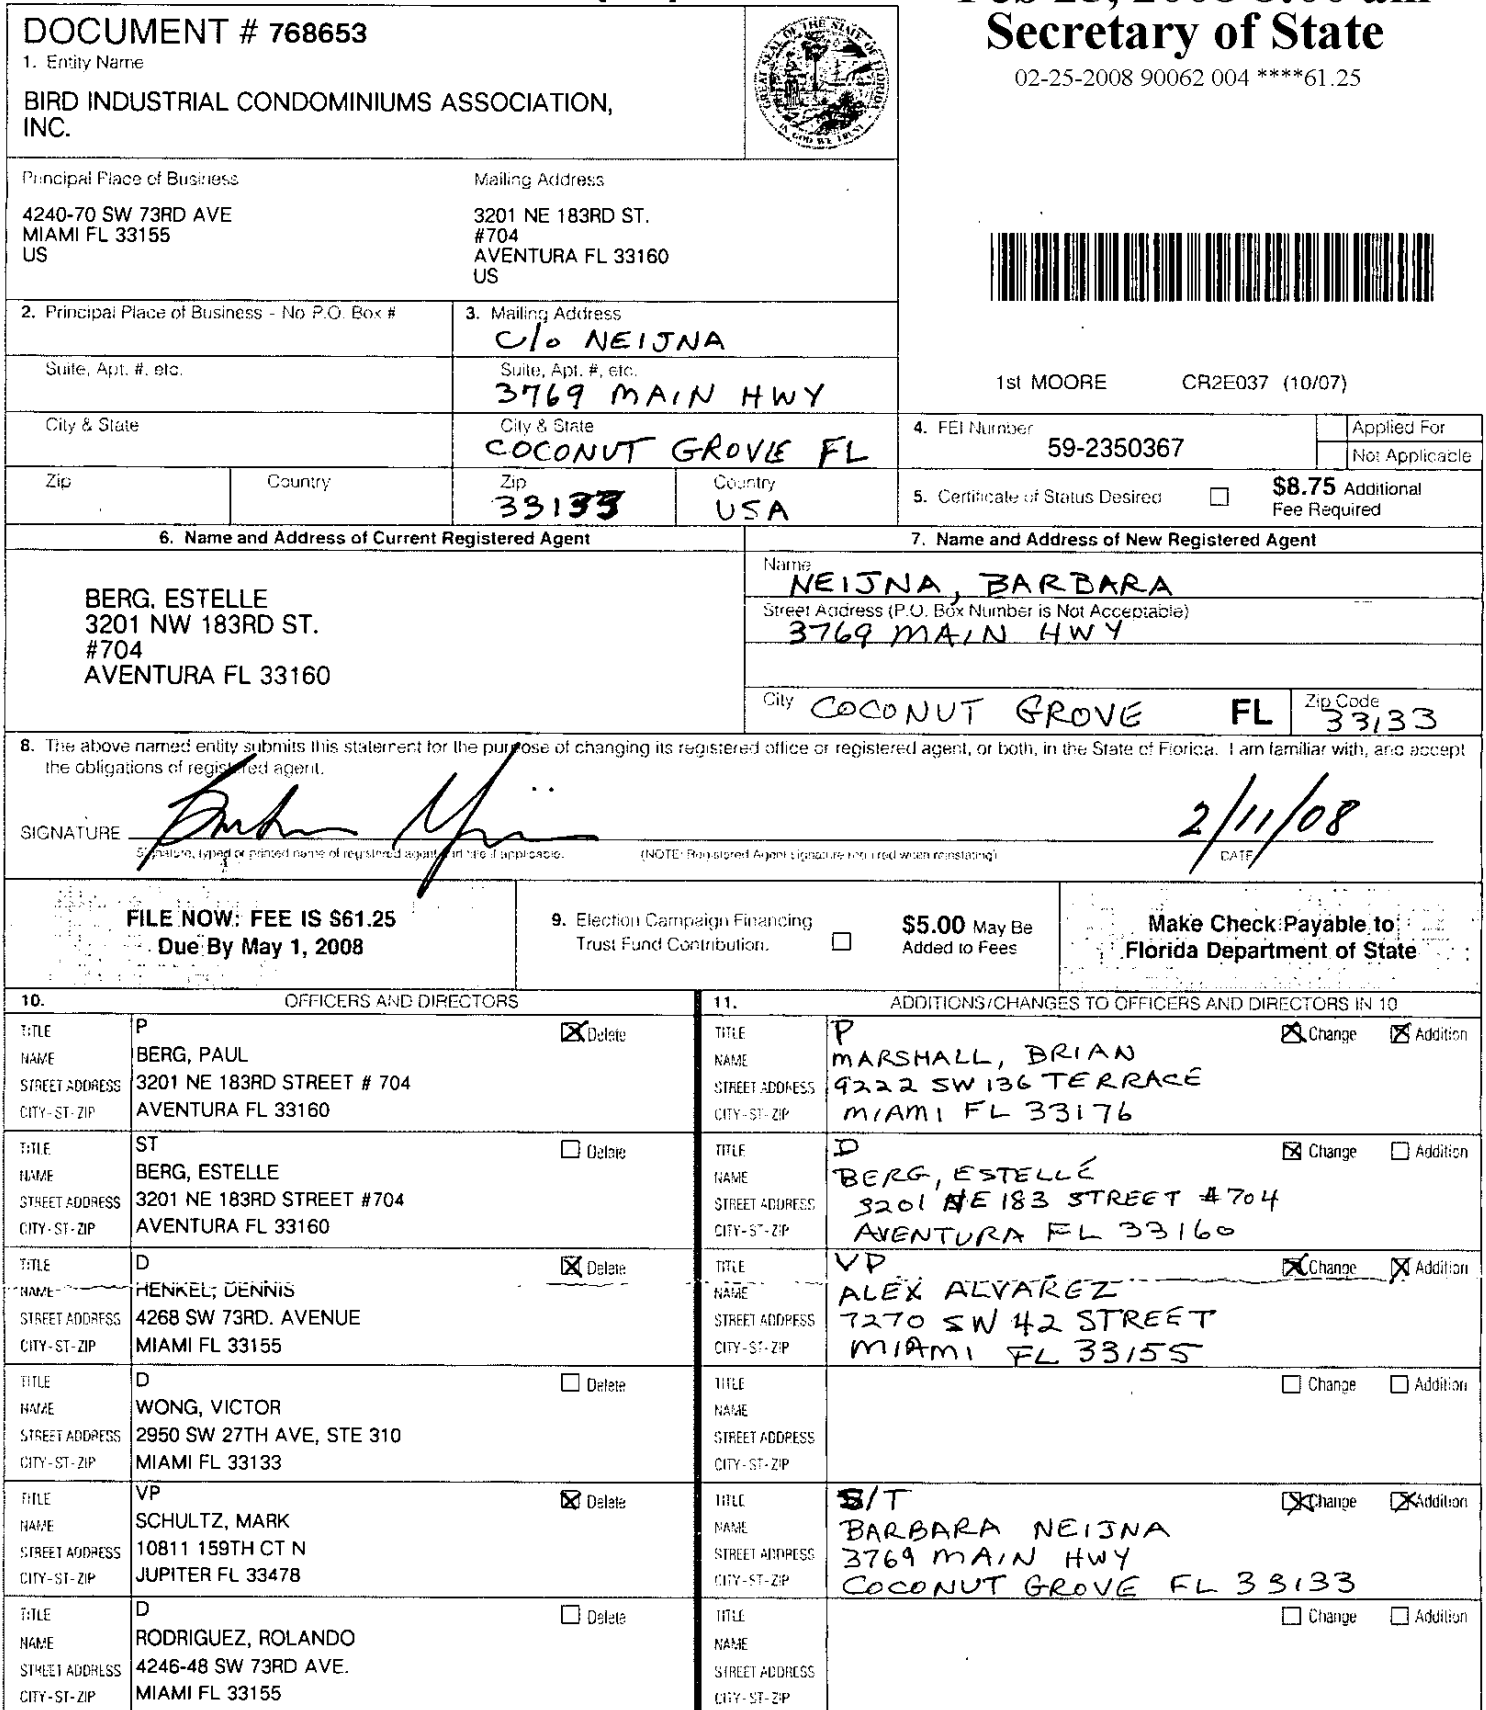 Secretary of State
02-25-2008 90062 004 ****61.25
DOCUMENT # 768653
1. Entity Name
BIRD INDUSTRIAL CONDOMINIUMS ASSOCIATION,
INC.
Principal Place of Business
4240-70 SW 73RD AVE
MIAMI FL 33155
US
Mailing Address
3201 NE 183RD ST.
#704
AVENTURA FL 33160
US
2. Principal Place of Business - No P.O. Box #
3. Mailing Address
C/o NEIJNA
Suite, Apt. #, etc.
Suite, Apt. #, etc.
3769 MAIN HWY
City & State
City & State
COCONUT GROVE FL
Zip
Country
Zip
33133
Country
USA
1st MOORE CR2E037 (10/07)
4. FEI Number
59-2350367
Applied For
Not Applicable
5. Certificate of Status Desired
$8.75 Additional
Fee Required
6. Name and Address of Current Registered Agent
BERG, ESTELLE
3201 NW 183RD ST.
#704
AVENTURA FL 33160
7. Name and Address of New Registered Agent
Name
NEIJNA, BARBARA
Street Address (P.O. Box Number is Not Acceptable)
3769 MAIN HWY
City COCONUT GROVE FL
Zip Code
33133
8. The above named entity submits this statement for the purpose of changing its registered office or registered agent, or both, in the State of Florida. I am familiar with, and accept
the obligations of registered agent.
SIGNATURE
2/11/08
Signature, typed or printed name of registered agent and title if applicable. (NOTE: Registered Agent signature required when reinstating) DATE
FILE NOW: FEE IS $61.25
Due By May 1, 2008
9. Election Campaign Financing
Trust Fund Contribution.
$5.00 May Be
Added to Fees
Make Check Payable to
Florida Department of State
10. OFFICERS AND DIRECTORS
TITLE P Delete
NAME BERG, PAUL
STREET ADDRESS 3201 NE 183RD STREET # 704
CITY-ST-ZIP AVENTURA FL 33160
TITLE ST Delete
NAME BERG, ESTELLE
STREET ADDRESS 3201 NE 183RD STREET #704
CITY-ST-ZIP AVENTURA FL 33160
TITLE D Delete
NAME HENKEL, DENNIS
STREET ADDRESS 4268 SW 73RD. AVENUE
CITY-ST-ZIP MIAMI FL 33155
TITLE D Delete
NAME WONG, VICTOR
STREET ADDRESS 2950 SW 27TH AVE, STE 310
CITY-ST-ZIP MIAMI FL 33133
TITLE VP Delete
NAME SCHULTZ, MARK
STREET ADDRESS 10811 159TH CT N
CITY-ST-ZIP JUPITER FL 33478
TITLE D Delete
NAME RODRIGUEZ, ROLANDO
STREET ADDRESS 4246-48 SW 73RD AVE.
CITY-ST-ZIP MIAMI FL 33155
11. ADDITIONS/CHANGES TO OFFICERS AND DIRECTORS IN 10
TITLE P Change Addition
NAME MARSHALL, BRIAN
STREET ADDRESS 9222 SW 136 TERRACE
CITY-ST-ZIP MIAMI FL 33176
TITLE D Change Addition
NAME BERG, ESTELLE
STREET ADDRESS 3201 NE 183 STREET #704
CITY-ST-ZIP AVENTURA FL 33160
TITLE VP Change Addition
NAME ALEX ALVAREZ
STREET ADDRESS 7270 SW 42 STREET
CITY-ST-ZIP MIAMI FL 33155
TITLE Change Addition
NAME
STREET ADDRESS
CITY-ST-ZIP
TITLE S/T Change Addition
NAME BARBARA NEIJNA
STREET ADDRESS 3769 MAIN HWY
CITY-ST-ZIP COCONUT GROVE FL 33133
TITLE Change Addition
NAME
STREET ADDRESS
CITY-ST-ZIP